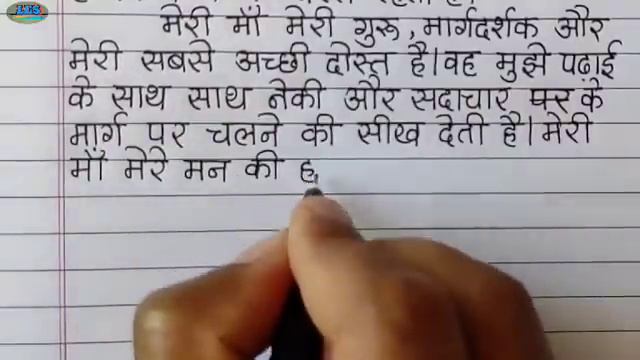 LTS
मेरी माँ मेरी गुरू, मार्गदर्शक और
मेरी सबसे अच्छी दोस्त है। वह मुझे पढ़ाई
के साथ साथ नेकी और सदाचार के
मार्ग पर चलने की सीख देती है। मेरी
माँ मेरे मन की ह